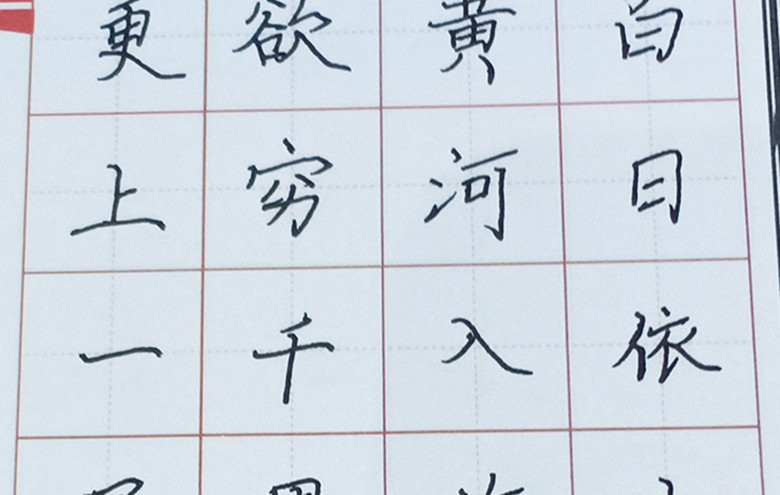 白日依
黄河入
欲穷千
更上一